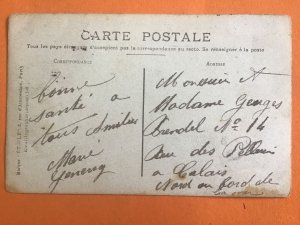 CARTE POSTALE
Tous les pays étrangers n'acceptent pas la correspondance au recto. Se renseigner à la poste
CORRESPONDANCE
ADRESSE
bonne
santé a
tous Amities
Marie
Monsieur et
Madame Georges
No 14
Rue des
a Calais
Nord au bord de
la mer